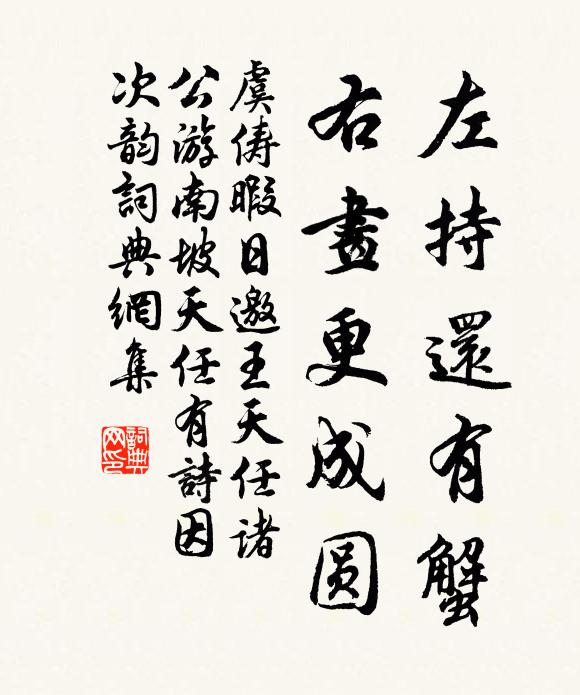 左持還有蟹
右畫更成圓
虞儔暇日邀王天任諸
公游南坡天任有詩因
次韵詞典網集
詞典网印